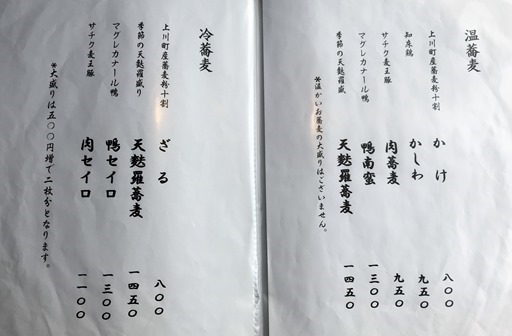 温蕎麦
上川町産蕎麦粉十割 かけ 八〇〇
知床鶏 かしわ 九五〇
サチク麦王豚 肉蕎麦 九五〇
マグレカナール鴨 鴨南蛮 一三〇〇
季節の天麩羅盛り 天麩羅蕎麦 一四五〇
※温かいお蕎麦の大盛りはございません。
冷蕎麦
上川町産蕎麦粉十割 ざる 八〇〇
季節の天麩羅盛り 天麩羅蕎麦 一四五〇
マグレカナール鴨 鴨セイロ 一三〇〇
サチク麦王豚 肉セイロ 一一〇〇
※大盛りは五〇〇円増で二枚分となります。